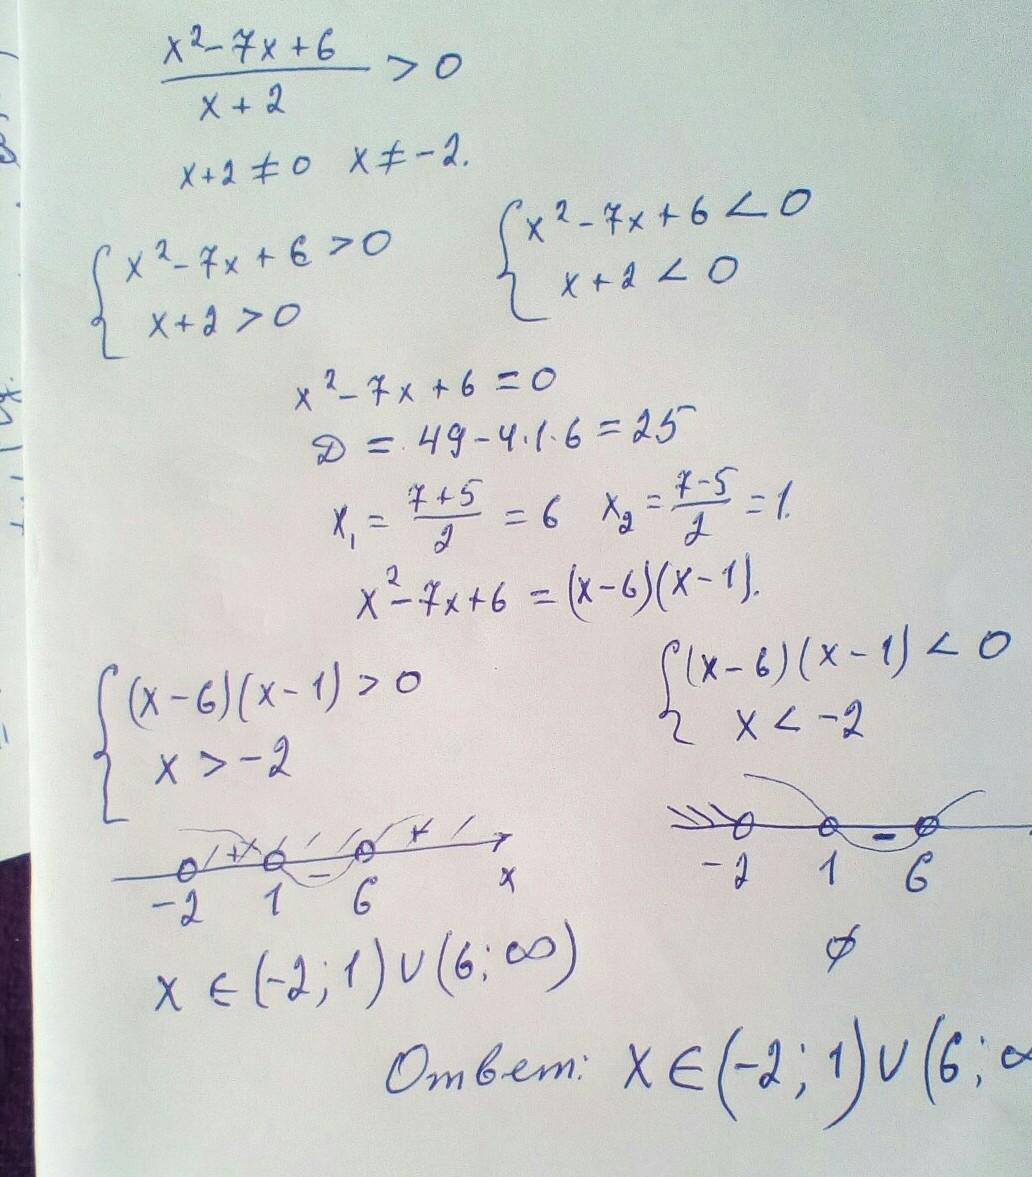 x²-7x+6
x+2
>0
x+2≠0 x≠-2.
{x²-7x+6>0
x+2>0
{x²-7x+6<0
x+2<0
x²-7x+6=0
D=49-4·1·6=25
x₁=(7+5)/2=6 x₂=(7-5)/2=1.
x²-7x+6=(x-6)(x-1).
{(x-6)(x-1)>0
x>-2
{(x-6)(x-1)<0
x<-2
+ - +
-2 1 6 x
-
-2 1 6
x∈(-2;1)∪(6;∞)
∅
Ответ: x∈(-2;1)∪(6;∞